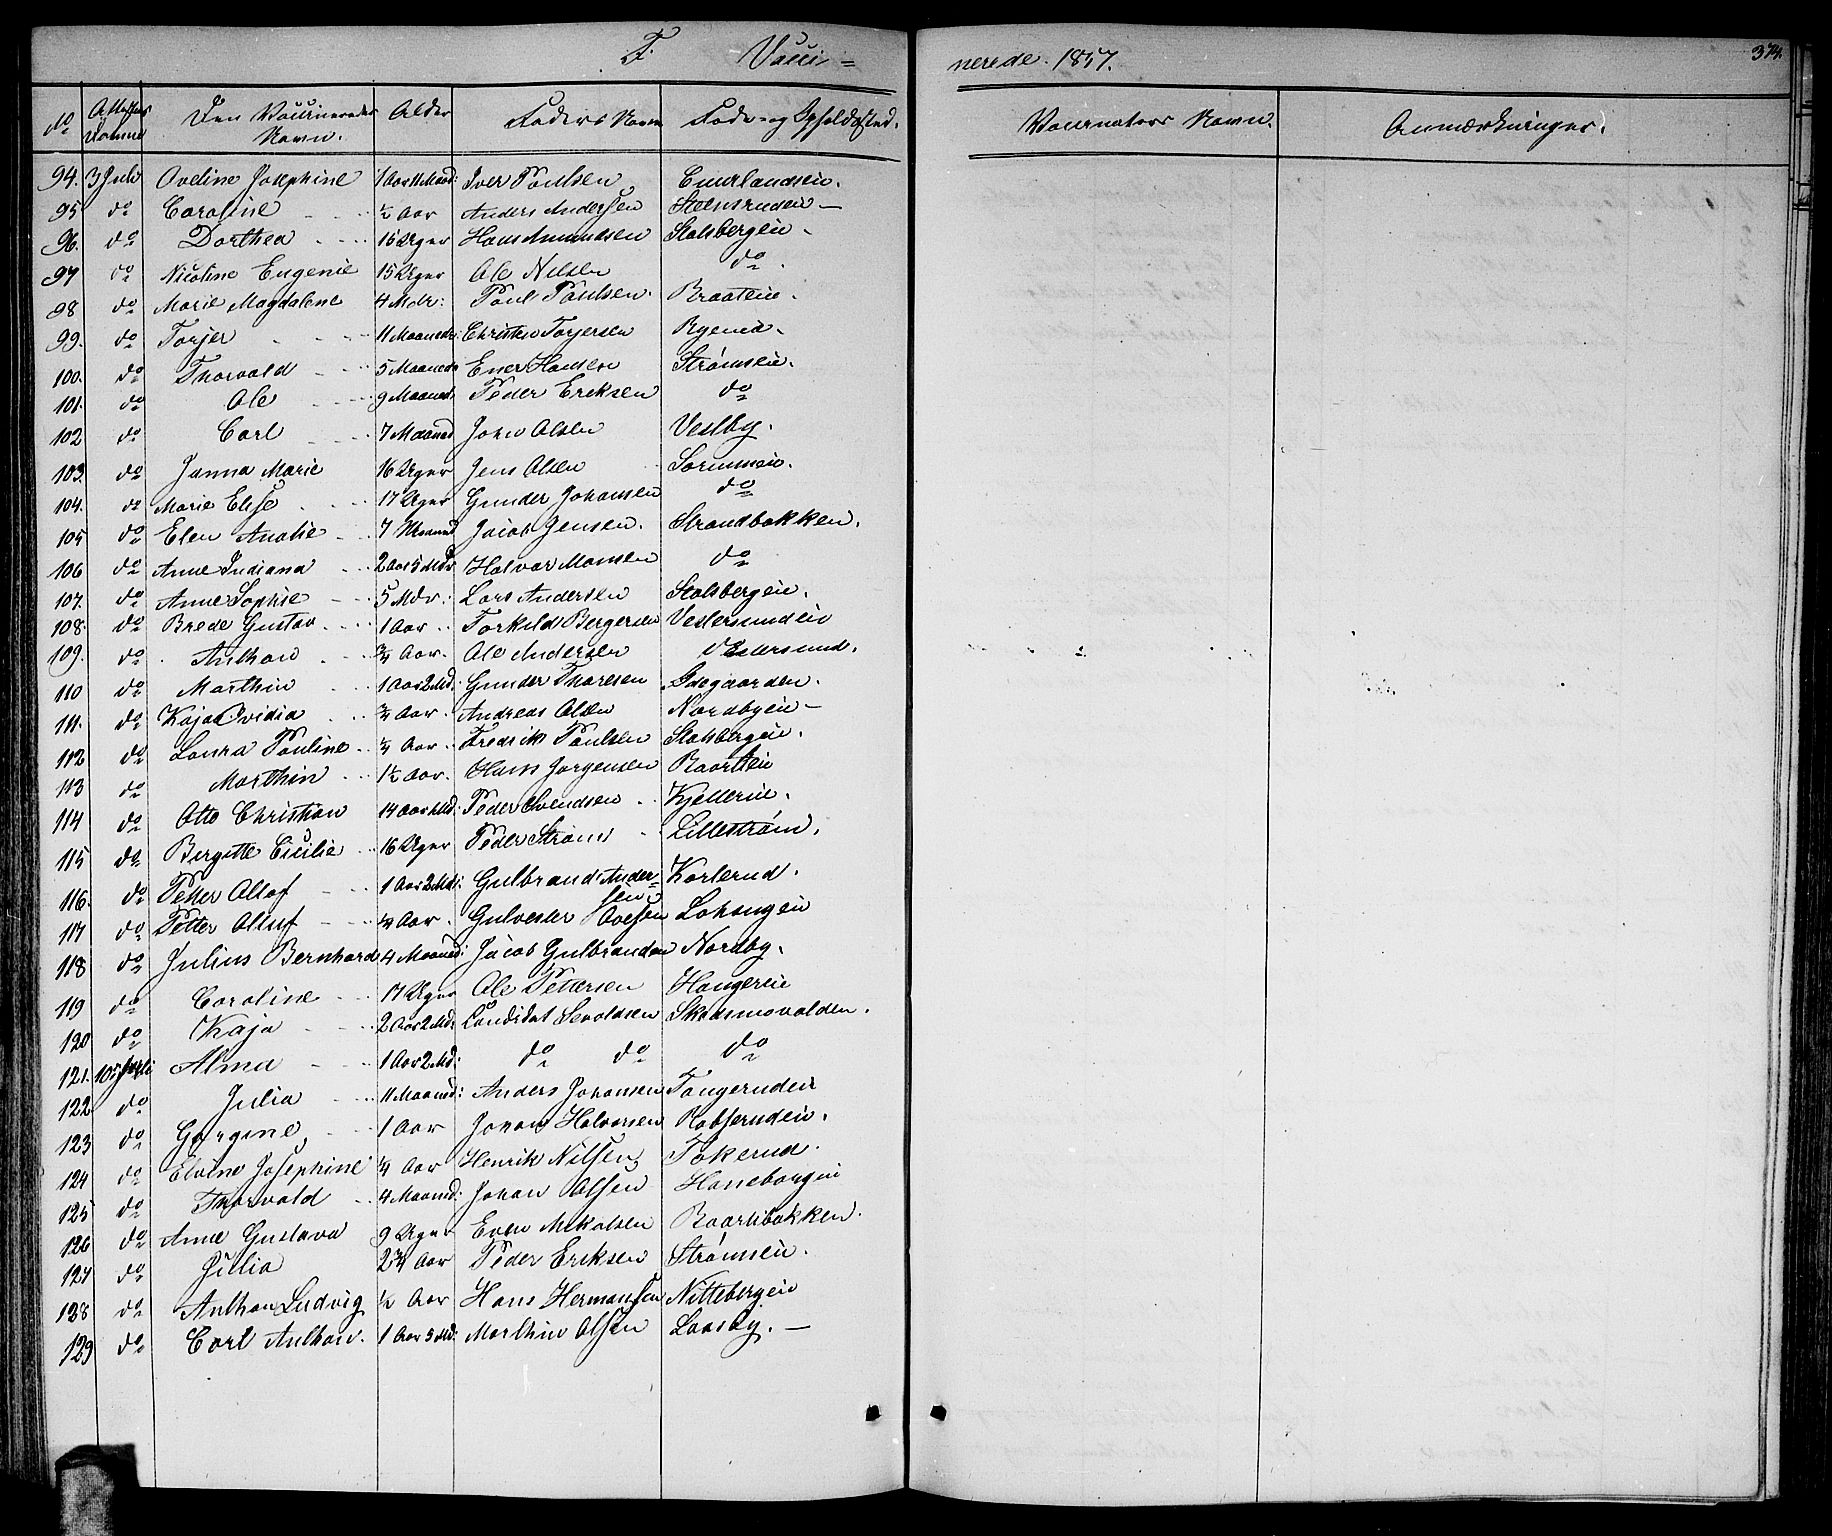 F. Vacci=
nerede. 1857.
374.
No Attestens Datum Den Vaccineredes Navn. Alder Faders Navn Føde- og Opholdssted. Vaccinateurs Navn. Anmærkninger.
94. 3 Juli Oveline Josephine 1 Aar 11 Maad: Iver Poulsen
95 do Caroline ½ Aar Anders Andersen Steensrudeie
96. do Dorthea 15 Uger Hans Amundsen Stalsbergeie
97 do Nicoline Eugenie 15 Uger Ole Nilsen do
98 do Marie Magdalene 4 Mdr: Poul Poulsen Braateeie
99. do Torjer 11 Maaneder Christen Torjersen Ryeneie
100. do Thorvald 5 Maaneder Ener Hansen Strømseie
101. do Ole 9 Maaned: Peder Eriksen do
102 do Carl 7 Maaned John Olsen Vestby.
103. do Janna Marie 16 Uger Jens Olsen
104. do Marie Elise 17 Uger Gunder Johansen do
105 do Elen Analie 7 Maaned Jacob Jensen. Strandbakken.
106 do Anne Indiana 2 Aar 5 Mdr Halvor Monsen do
107. do Anne Sophie 5 Mdr: Lars Andersen Stalsbergeie.
108. do Brede Gustav 1 Aar Torkild Bergersen Vestersundeie
109. do Anthon ¾ Aar. Ole Andersen Vestersund.
110 do Marthin 1 Aar 2 Md: Gunder Thoresen
111. do Kaja Ovidia ¾ Aar. Andreas Olsen Nordbyeie
112 do Laura Pauline ¼ Aar Fredrik Poulsen Stalsbergeie.
113 do Marthin 1½ Aar. Hans Jørgensen
114 do Otto Christian 14 Aar Peder Svendsen Kjellereie.
115 do Bergitte Cicilie 16 Uger Peder Strøm Lillestrøm.
116. do Petter Ollaf 1 Aar 2 Md: Gulbrand Ander=
sen Korterud.
117 do Petter Olluf ¼ Aar. Gulvester
118 do Julius Bernhard 4 Maaned: Jacob Gulbrandsen Nordby.
119 do Caroline 17 Uger Ole Pettersen Haugereie
120 do Kaja 2 Aar 2 Md: Candidat Sevaldsen Skedsmovolden.
121. 10 Juli Alma 1 Aar 2 Md: do do do
122 do Julia 11 Maaned: Anders Johansen Tangerudeie
123 do Gorgine 1 Aar Johan Halvorsen
124 do Elvine Josephine ¼ Aar Henrik Nilsen Tokerud.
125 do Thorvald 4 Maaned: Johan Olsen Haneborgeie
126 do Anne Gustava 9 Uger Even Mikalsen
127 do Julia 2¾ Aar Peder Eriksen Strømseie.
128 do Anthon Ludvig ½ Aar Hans Hermansen Nittebergeie
129 do Carl Anthon. 1 Aar 3 Md: Marthin Olsen Laasby.